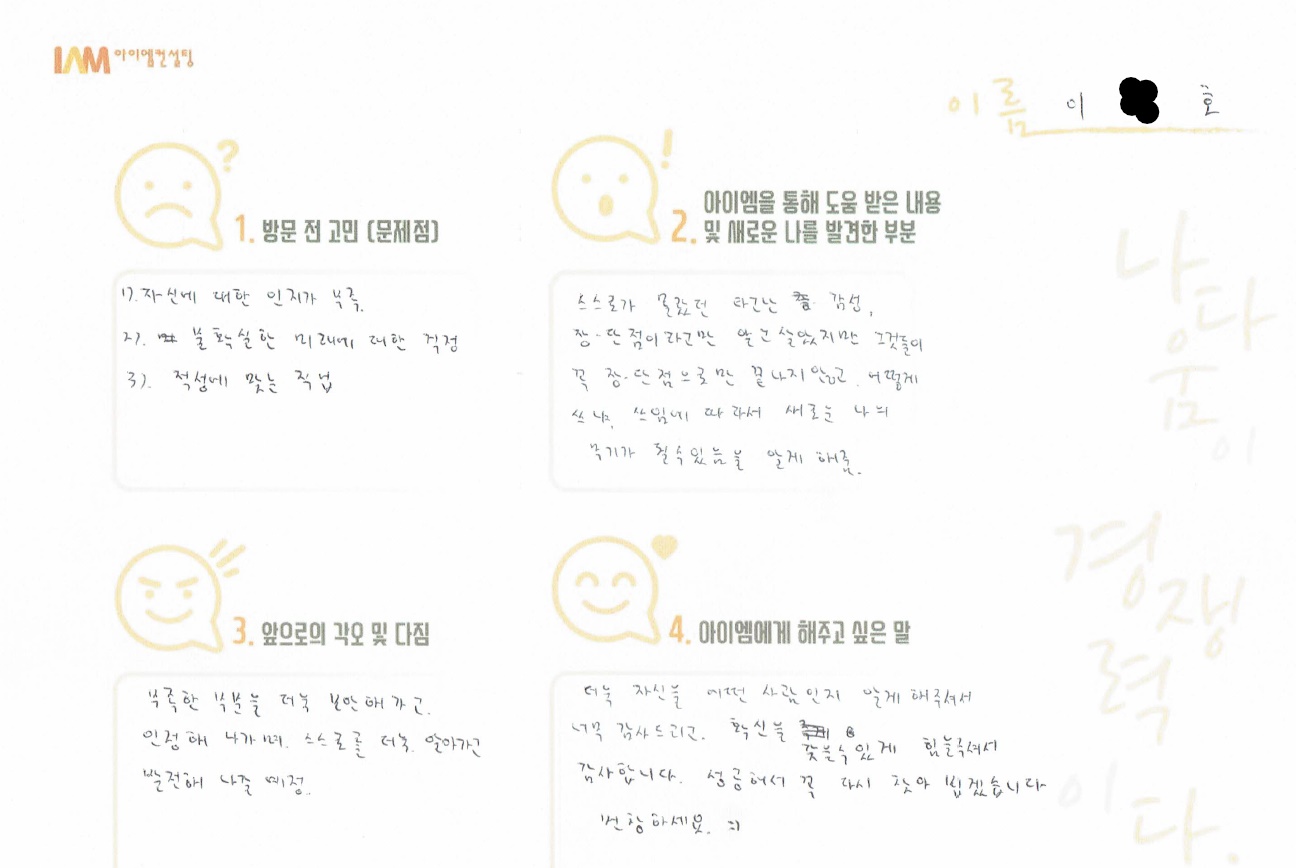 IAM 아이엠컨설팅
이름 이 호
1. 방문 전 고민 (문제점)
1). 자신에 대한 인지가 부족.
2). 불확실한 미래에 대한 걱정
3). 적성에 맞는 직업
2. 아이엠을 통해 도움 받은 내용
및 새로운 나를 발견한 부분
스스로가 몰랐던 타고난 감성,
장·단점이라고만 알고 살았지만 그것들이
꼭 장·단점으로만 끝나지 않고, 어떻게
쓰냐, 쓰임에 따라서 새로운 나의
무기가 될수있음을 알게 해줌.
3. 앞으로의 각오 및 다짐
부족한 부분을 더욱 보안해 가고.
인정해 나가며, 스스로를 더욱 알아가고
발전해 나갈 예정.
4. 아이엠에게 해주고 싶은 말
더욱 자신을 어떤 사람인지 알게 해주셔서
너무 감사드리고. 확신을
갖을수있게 힘을주셔서
감사합니다. 성공해서 꼭 다시 찾아 뵙겠습니다
번창하세요. :)
나다움이
경쟁력이다.